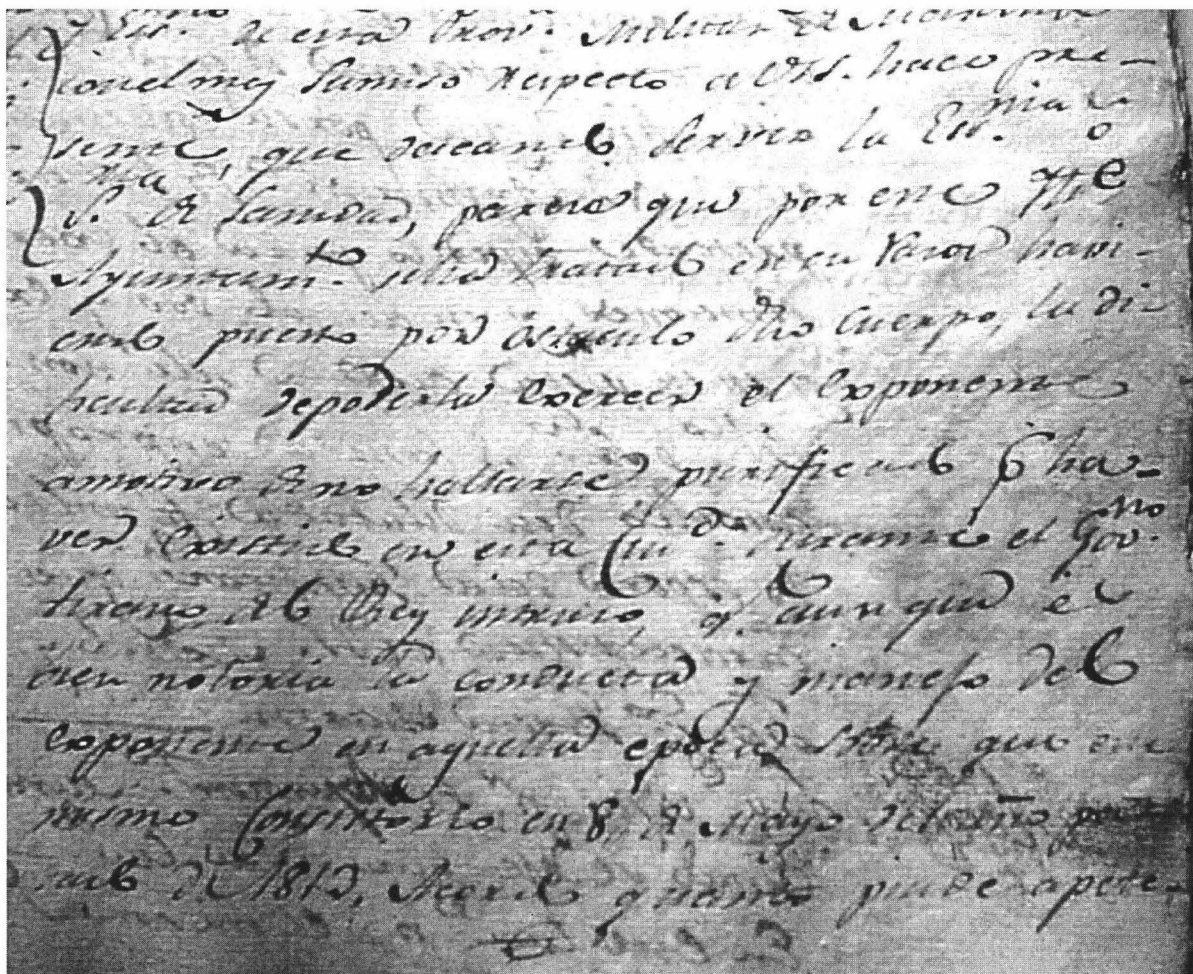 y Es. de esta Prov.ª Militar de Marina
con el mas sumiso respecto a VSS. hace pre-
sente, que deseando servir la Es.nia
S.ª de Sanidad, parece que por ese Yltte
Ayuntam.to se ha tratado en su razon havi-
endo puesto por ostaculo dho Cuerpo, la di-
ficultad de poderla Exercer el Exponente
amotivo de no hallarse purificado p.r ha-
ver Existido en esta Ciu.d durante el Gov.no
tirano del Rey intruso, y aunque es
bien notoria la conducta y manejo del
exponente en aquella epoca sobre que ese
mismo Consistorio en 8 de Mayo del año pa
sado de 1813, Acordó quanto puede apete-